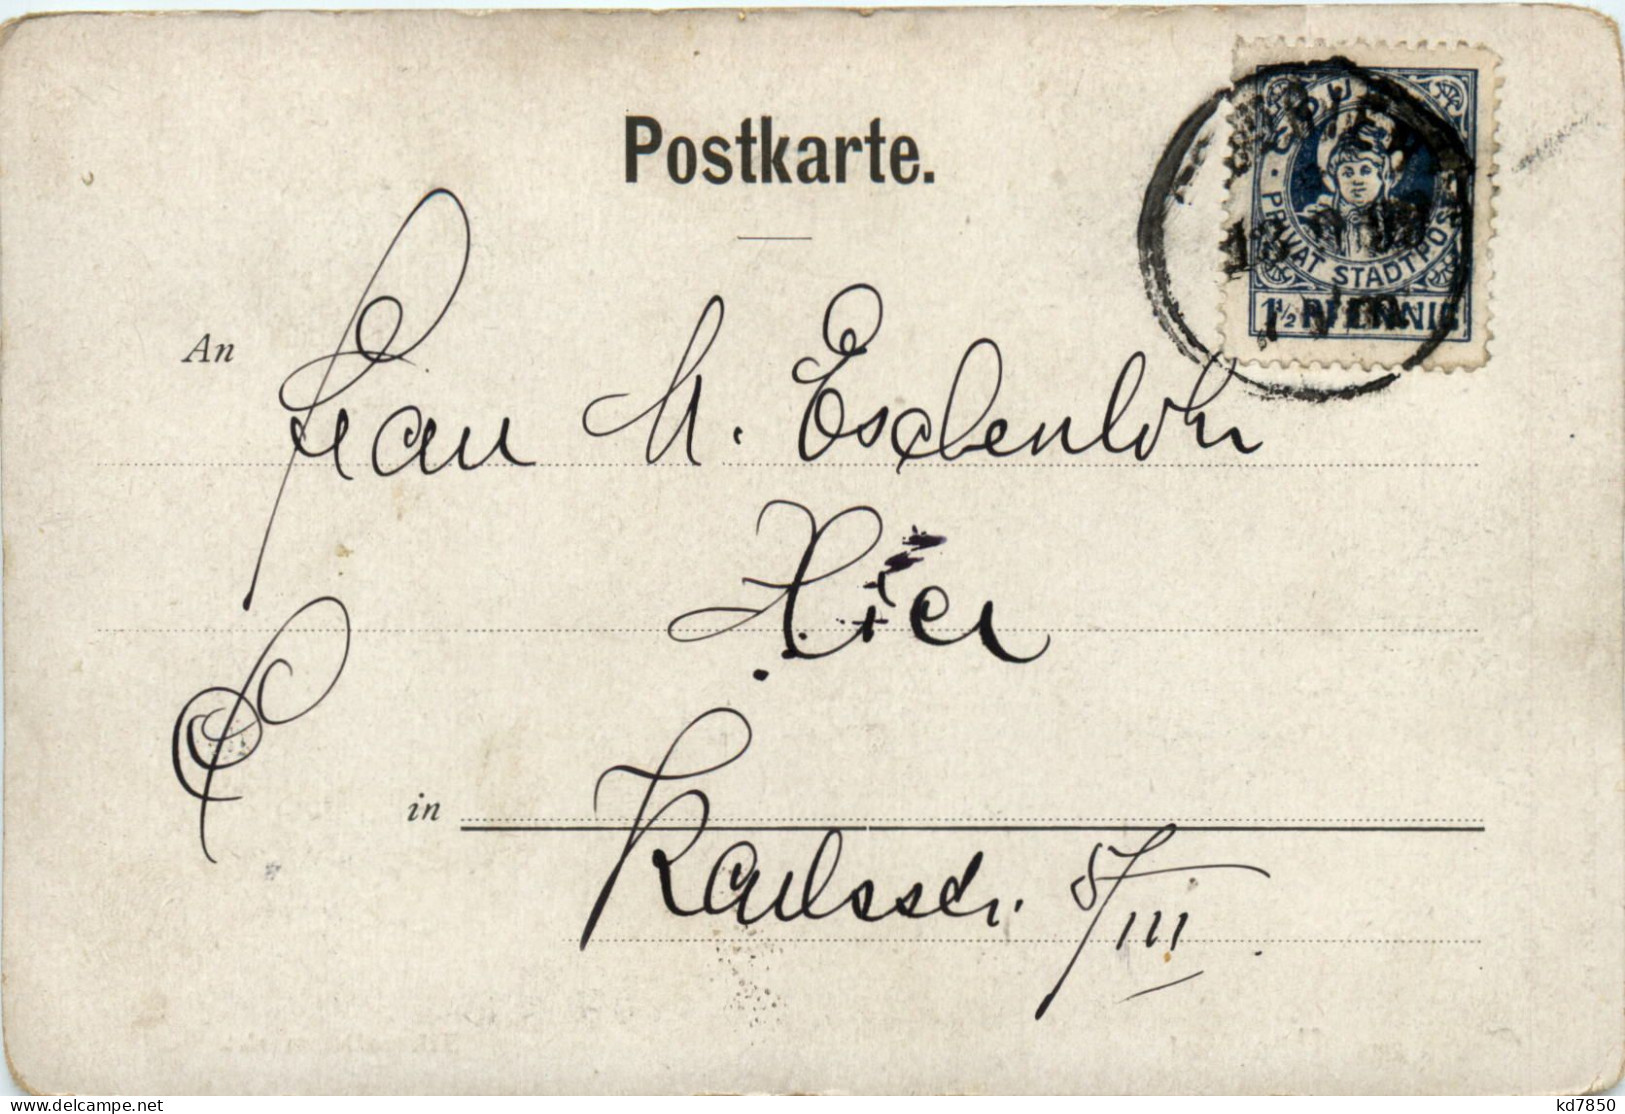 Postkarte.
PRIVAT STADTPOST
1½ PFENNIG
An Frau M. Eschenlohr
Hier
in
Karlsstr. 5/III.
delcampe.net
kd7850